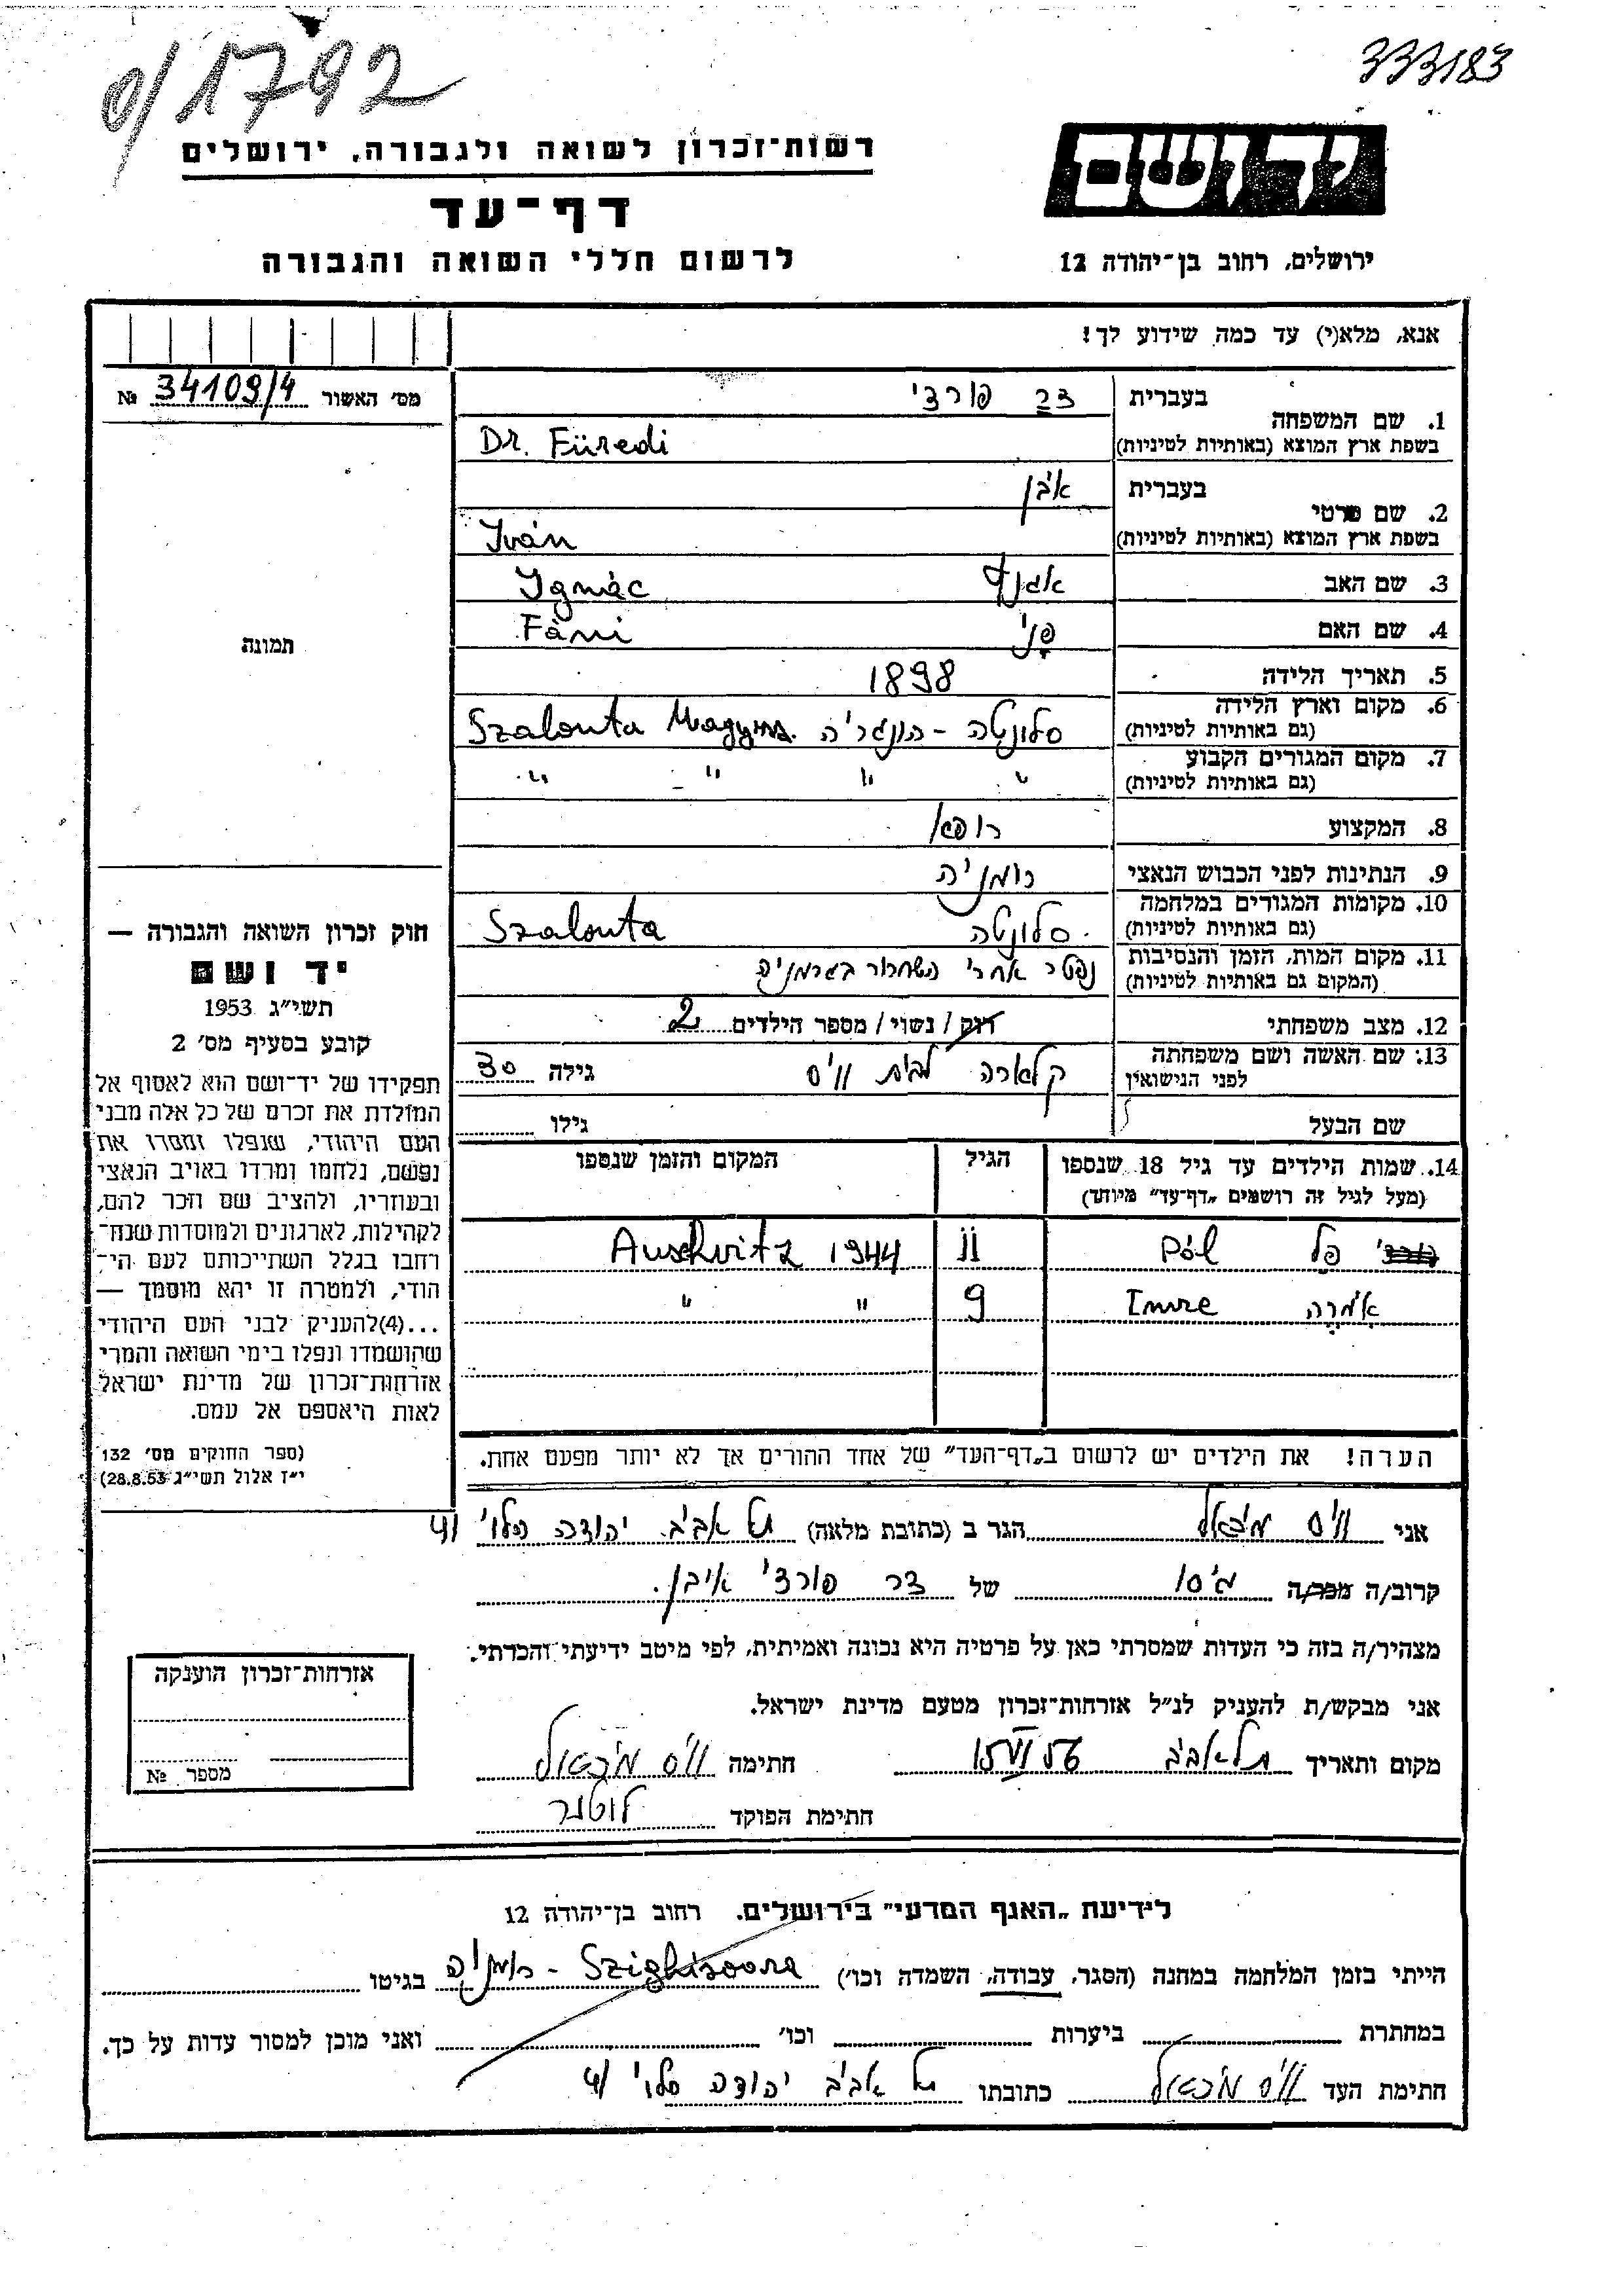 0/1792
333183
יד ושם
רשות־זכרון לשואה ולגבורה, ירושלים
דף־עד
לרשום חללי השואה והגבורה
ירושלים, רחוב בן־יהודה 12
אנא, מלא(י) עד כמה שידוע לך!
מס׳ האשור 34109/4 №
תמונה
חוק זכרון השואה והגבורה —
יד ושם
תשי״ג 1953
קובע בסעיף מס׳ 2
תפקידו של יד־ושם הוא לאסוף אל
המולדת את זכרם של כל אלה מבני
העם היהודי, שנפלו ומסרו את
נפשם, נלחמו ומרדו באויב הנאצי
ובעוזריו, ולהציב שם וזכר להם,
לקהילות, לארגונים ולמוסדות שנח־
רחבו בגלל השתייכותם לעם הי־
הודי, ולמטרה זו יהא מוסמך —
...(4)להעניק לבני העם היהודי
שהושמדו ונפלו בימי השואה והמרי
אזרחות־זכרון של מדינת ישראל
לאות היאספם אל עמם.
(ספר החוקים מס׳ 132
י״ז אלול תשי״ג 28.8.53)
1. שם המשפחה בעברית דר פורדי
בשפת ארץ המוצא (באותיות לטיניות) Dr. Füredi
2. שם פרטי בעברית איבן
בשפת ארץ המוצא (באותיות לטיניות) Iván
3. שם האב אגנץ Ignác
4. שם האם פני Fáni
5. תאריך הלידה 1898
6. מקום וארץ הלידה (גם באותיות לטיניות) סלונטה - הונגריה Szalonta Magyar.
7. מקום המגורים הקבוע (גם באותיות לטיניות) " " " "
8. המקצוע רופא
9. הנתינות לפני הכבוש הנאצי רומניה
10. מקומות המגורים במלחמה (גם באותיות לטיניות) סלונטה Szalonta
11. מקום המות, הזמן והנסיבות (המקום גם באותיות לטיניות) נפטר אחרי השחרור בגרמניה
12. מצב משפחתי רוק / נשוי / מספר הילדים 2
13. שם האשה ושם משפחתה לפני הנישואין קלארה לבית וויס גילה 30
שם הבעל גילו
14. שמות הילדים עד גיל 18 שנספו הגיל המקום והזמן שנספו
(מעל לגיל זה רושמים „דף־עד״ מיוחד)
פל Pól 11 Auschvitz 1944
אימרה Imre 9 " "
הערה! את הילדים יש לרשום ב„דף־העד״ של אחד ההורים אך לא יותר מפעם אחת.
אני וויס מיכאל הגר ב (כתובת מלאה) תל אביב יהודה הלוי 41
קרוב/ה מכר/ה גיסו של דר פורדי איבן.
מצהיר/ה בזה כי העדות שמסרתי כאן על פרטיה היא נכונה ואמיתית, לפי מיטב ידיעתי והכרתי.
אני מבקש/ת להעניק לנ״ל אזרחות־זכרון מטעם מדינת ישראל.
מקום ותאריך תל אביב 15 VI 56 חתימה וויס מיכאל
חתימת הפוקד
אזרחות־זכרון הוענקה
מספר №
לידיעת „האגף המדעי״ בירושלים. רחוב בן־יהודה 12
הייתי בזמן המלחמה במחנה (הסגר, עבודה, השמדה וכו׳) Szighisoora - רומניה בגיטו
במחתרת ביערות וכו׳ ואני מוכן למסור עדות על כך.
חתימת העד וויס מיכאל כתובתו תל אביב יהודה הלוי 41